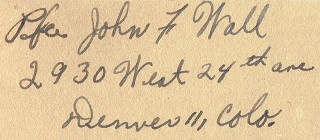 Pfc John F Wall
2930 West 24th ave
Denver 11, Colo.